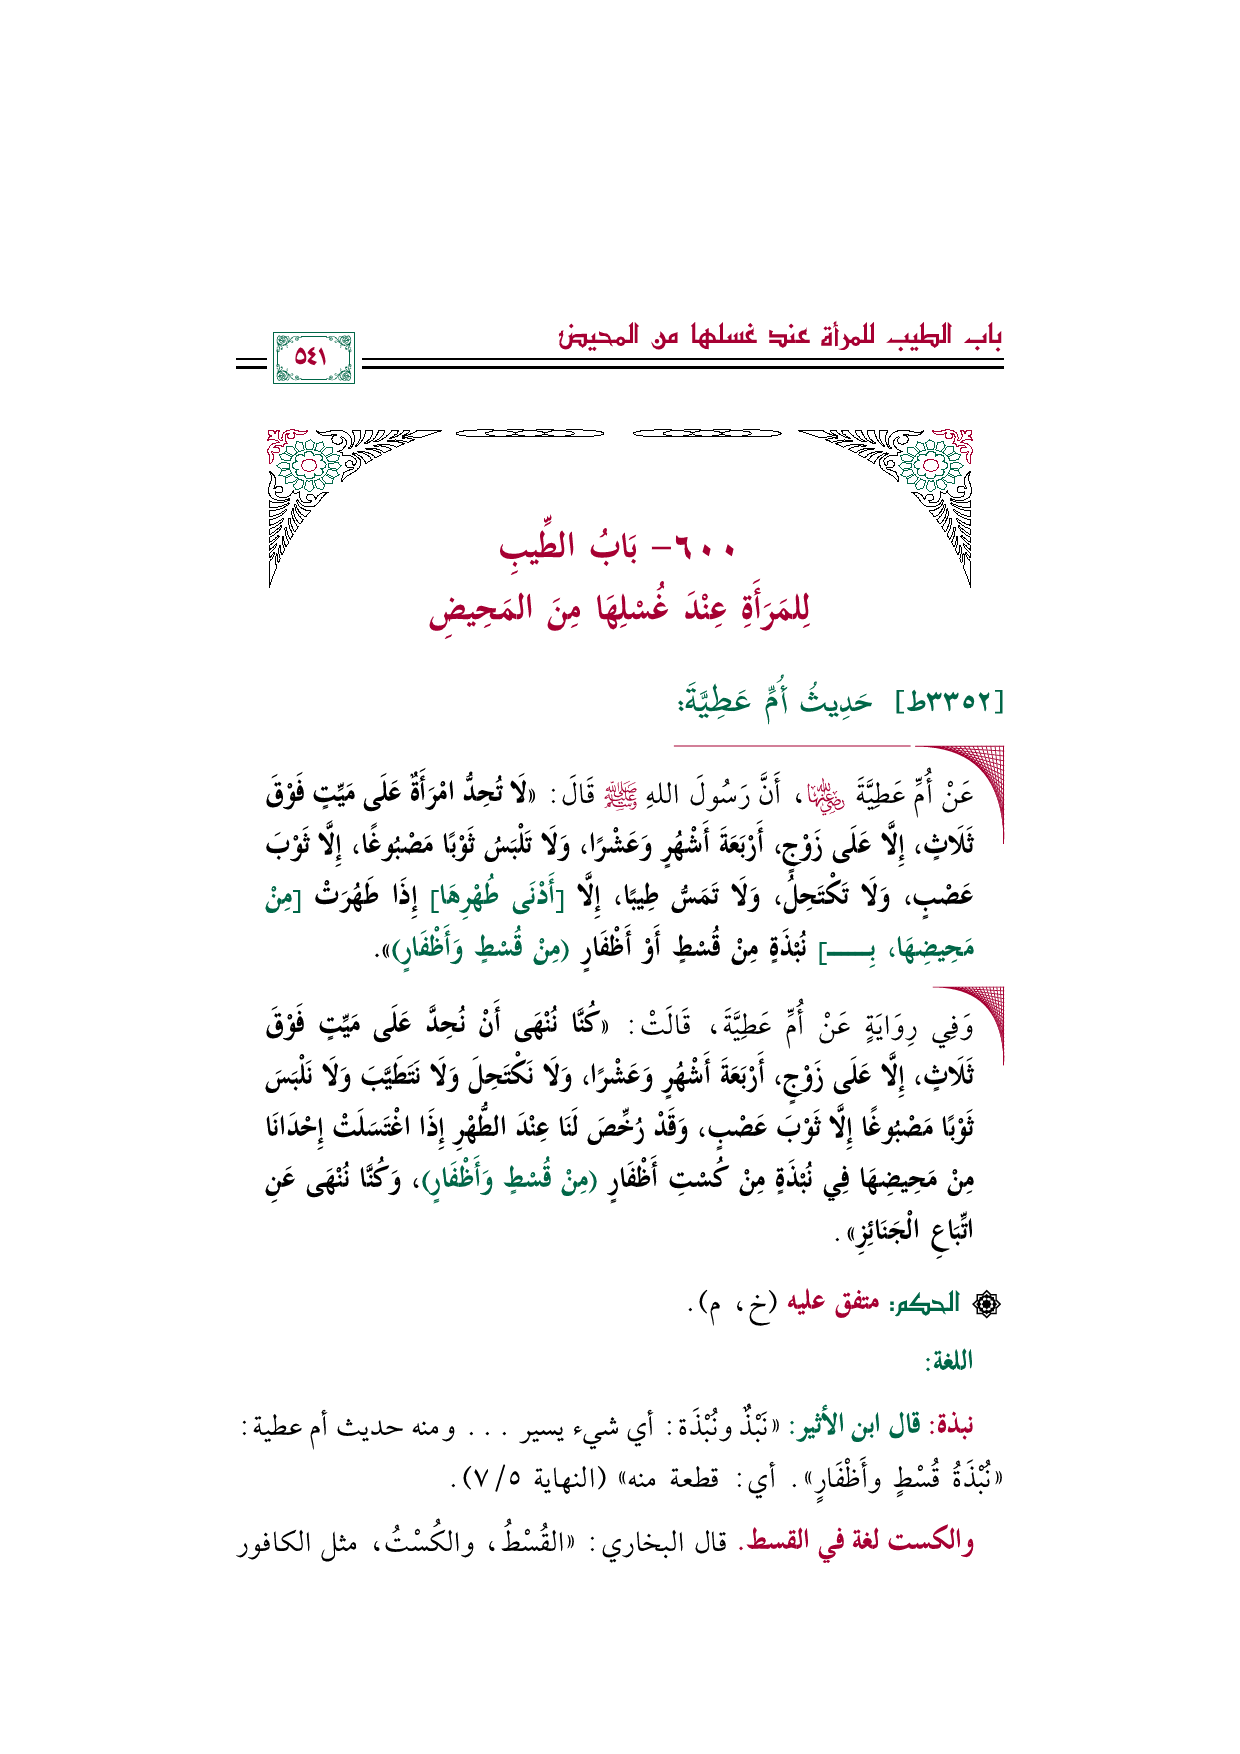 باب الطيب للمرأة عند غسلها من المحيض
٥٤١
٦٠٠- بَابُ الطِّيبِ
لِلمَرَأَةِ عِنْدَ غُسْلِهَا مِنَ المَحِيضِ
[٣٣٥٢ط] حَدِيثُ أُمِّ عَطِيَّةَ:
عَنْ أُمِّ عَطِيَّةَ رضي الله عنها، أَنَّ رَسُولَ اللهِ ﷺ قَالَ: «لَا تُحِدُّ امْرَأَةٌ عَلَى مَيِّتٍ فَوْقَ
ثَلَاثٍ، إِلَّا عَلَى زَوْجٍ، أَرْبَعَةَ أَشْهُرٍ وَعَشْرًا، وَلَا تَلْبَسُ ثَوْبًا مَصْبُوغًا، إِلَّا ثَوْبَ
عَصْبٍ، وَلَا تَكْتَحِلُ، وَلَا تَمَسُّ طِيبًا، إِلَّا [أَدْنَى طُهْرِهَا] إِذَا طَهُرَتْ [مِنْ
مَحِيضِهَا، بِـــــ] نُبْذَةٍ مِنْ قُسْطٍ أَوْ أَظْفَارٍ (مِنْ قُسْطٍ وَأَظْفَارٍ)».
وَفِي رِوَايَةٍ عَنْ أُمِّ عَطِيَّةَ، قَالَتْ: «كُنَّا نُنْهَى أَنْ نُحِدَّ عَلَى مَيِّتٍ فَوْقَ
ثَلَاثٍ، إِلَّا عَلَى زَوْجٍ، أَرْبَعَةَ أَشْهُرٍ وَعَشْرًا، وَلَا نَكْتَحِلَ وَلَا نَتَطَيَّبَ وَلَا نَلْبَسَ
ثَوْبًا مَصْبُوغًا إِلَّا ثَوْبَ عَصْبٍ، وَقَدْ رُخِّصَ لَنَا عِنْدَ الطُّهْرِ إِذَا اغْتَسَلَتْ إِحْدَانَا
مِنْ مَحِيضِهَا فِي نُبْذَةٍ مِنْ كُسْتِ أَظْفَارٍ (مِنْ قُسْطٍ وَأَظْفَارٍ)، وَكُنَّا نُنْهَى عَنِ
اتِّبَاعِ الْجَنَائِزِ».
الحكم: متفق عليه (خ، م).
اللغة:
نبذة: قال ابن الأثير: «نَبْذٌ ونُبْذَة: أي شيء يسير ... ومنه حديث أم عطية:
«نُبْذَةُ قُسْطٍ وأَظْفَارٍ». أي: قطعة منه» (النهاية ٥/ ٧).
والكست لغة في القسط. قال البخاري: «القُسْطُ، والكُسْتُ، مثل الكافور